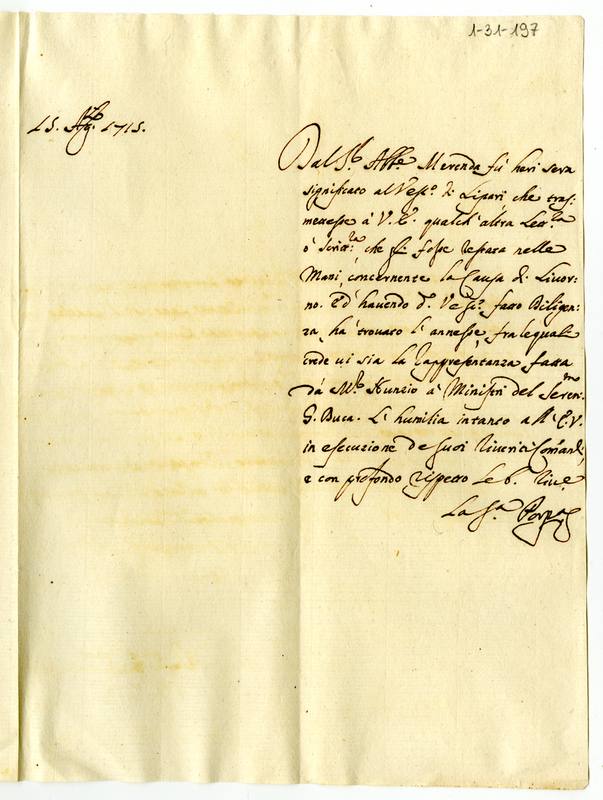 1-31-197
15. Ag.to 1715.
Dal S.r Abb.e Merenda fù heri sera
significato al Vesc.o di Lipari, che tras=
mettesse à V. E. qualch'altra Lett.ra
ò Scritt.ra che fosse restata nelle
Mani, concernente la Causa di Livor=
no. Ed havendo d.o Vesc.o fatto Diligen=
za, hà trovato l'annesse, fra le quali
crede vi sia la rappresentanza fatta
dà M.r Nunzio à Ministri del Seren.mo
G. Duca. L'humilia intanto all'E. V.
in esecuzione de suoi riveriti Comandi,
e con profondo rispetto le b. rive.
La S.a